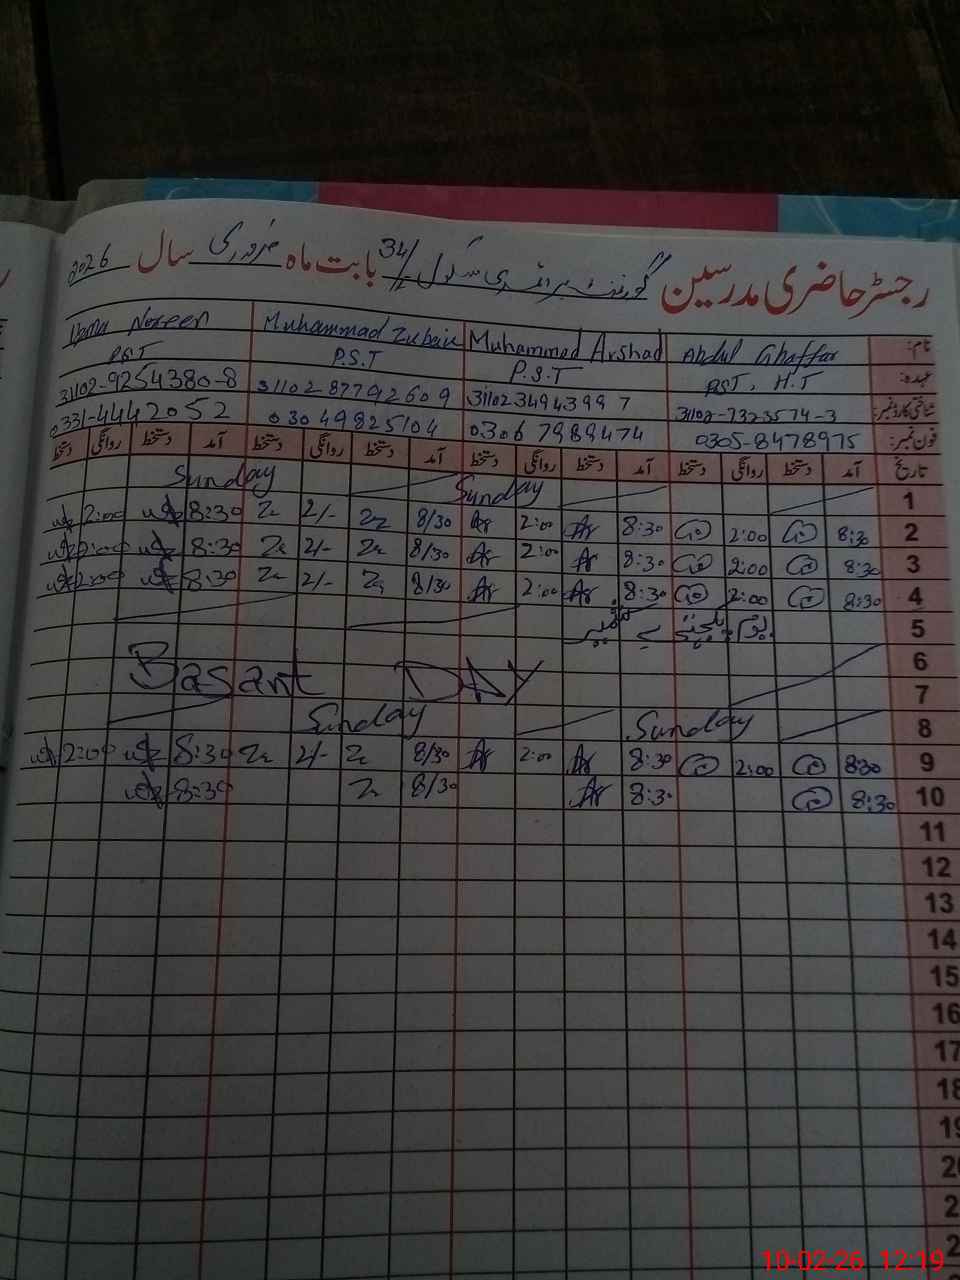 رجسٹر حاضری مدرسین گورنمنٹ پرائمری سکول 34/ بابت ماہ فروری سال 2026
نام: Abdul Ghaffar Muhammad Arshad Muhammad Zubair Noreen
عہدہ: PST, H.T P.S.T P.S.T PST
شناختی کارڈ نمبر: 31102-7323574-3 3110234943997 3110287792609 31102-9254380-8
فون نمبر: 0305-8478975 03067989474 03049825704 0331-4442052
تاریخ آمد دستخط روانگی دستخط آمد دستخط روانگی دستخط آمد دستخط روانگی دستخط آمد دستخط روانگی دستخط
1 Sunday Sunday
2 8:30 2:00 8:30 2:00 8/30 2/- 8:30 2:00
3 8:30 2:00 8:30 2:00 8/30 2/- 8:30 2:00
4 8:30 2:00 8:30 2:00 8/30 2/- 8:30 2:00
5 یوم یکجہتی کشمیر
6
7 Basant DAY
8 Sunday Sunday
9 8:30 2:00 8:30 2:00 8/30 2/- 8:30 2:00
10 8:30 8:30 8/30 8:30
11
12
13
14
15
16
17
18
19
20
10-02-26 12:19